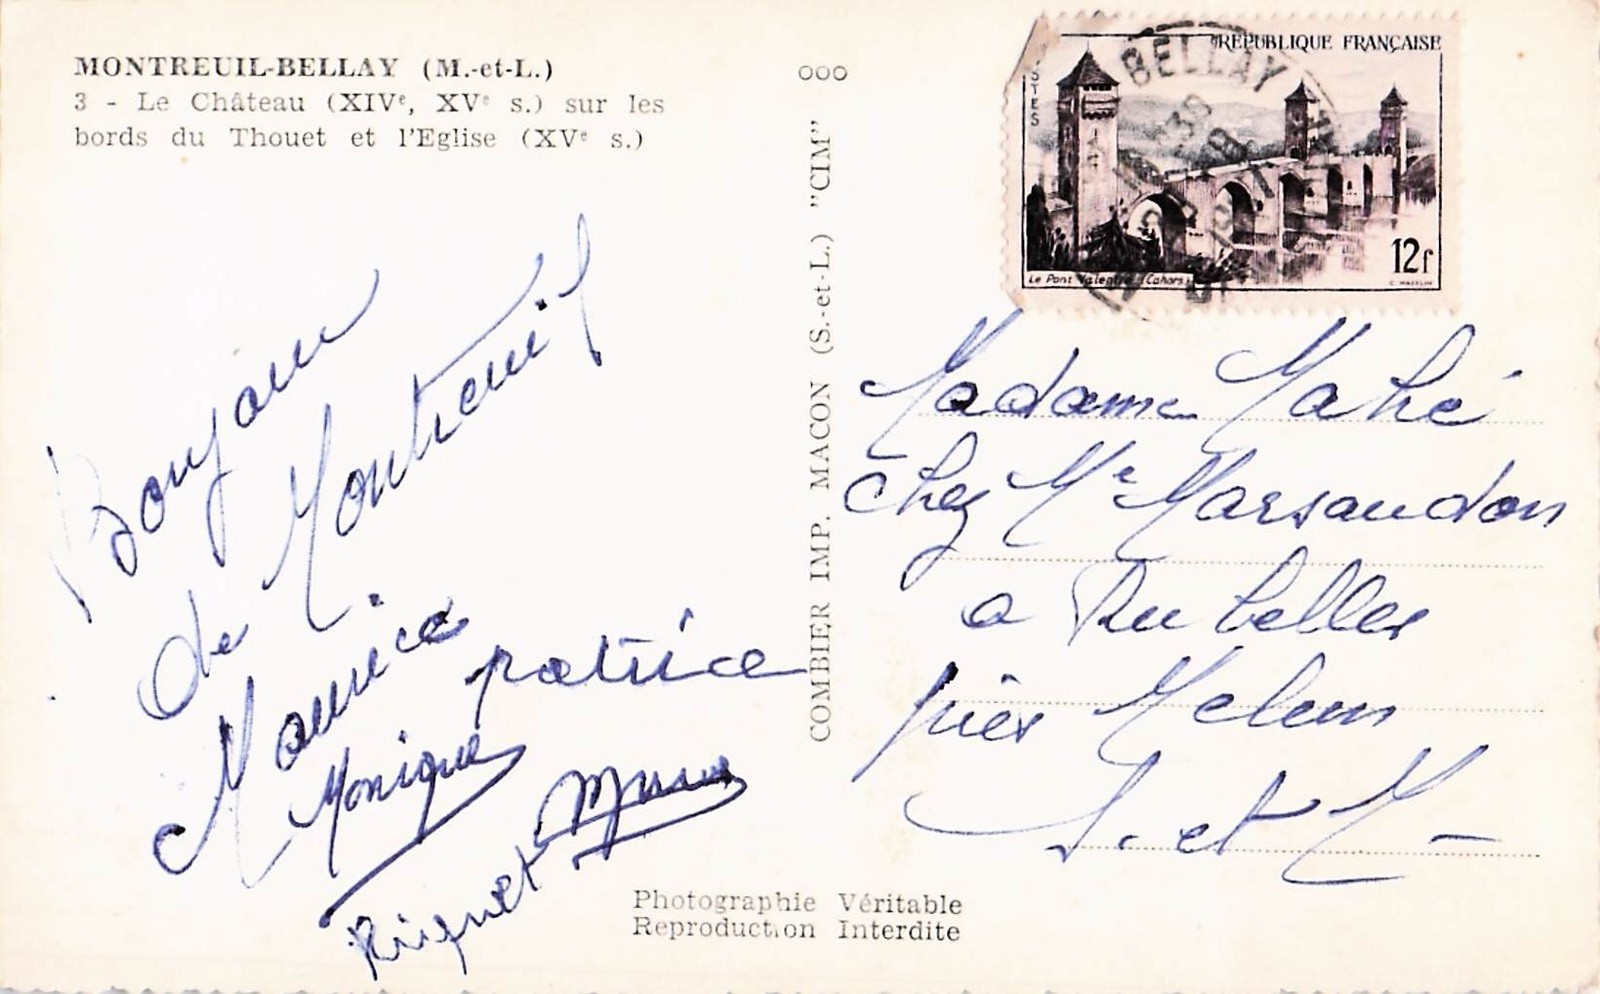 MONTREUIL-BELLAY (M.-et-L.)
3 - Le Château (XIVe, XVe s.) sur les
bords du Thouet et l'Eglise (XVe s.)
Bonjour
de Montreuil
Maurice
patrice
Monique
Riquet
COMBIER IMP. MACON (S.-et-L.) "CIM"
Photographie Véritable
Reproduction Interdite
REPUBLIQUE FRANÇAISE
POSTES
BELLAY
12f
Le Pont Valentré (Cahors)
Madame Mahé
chez Mr Marsaudon
a Rubelles
près Melun
S. et M-